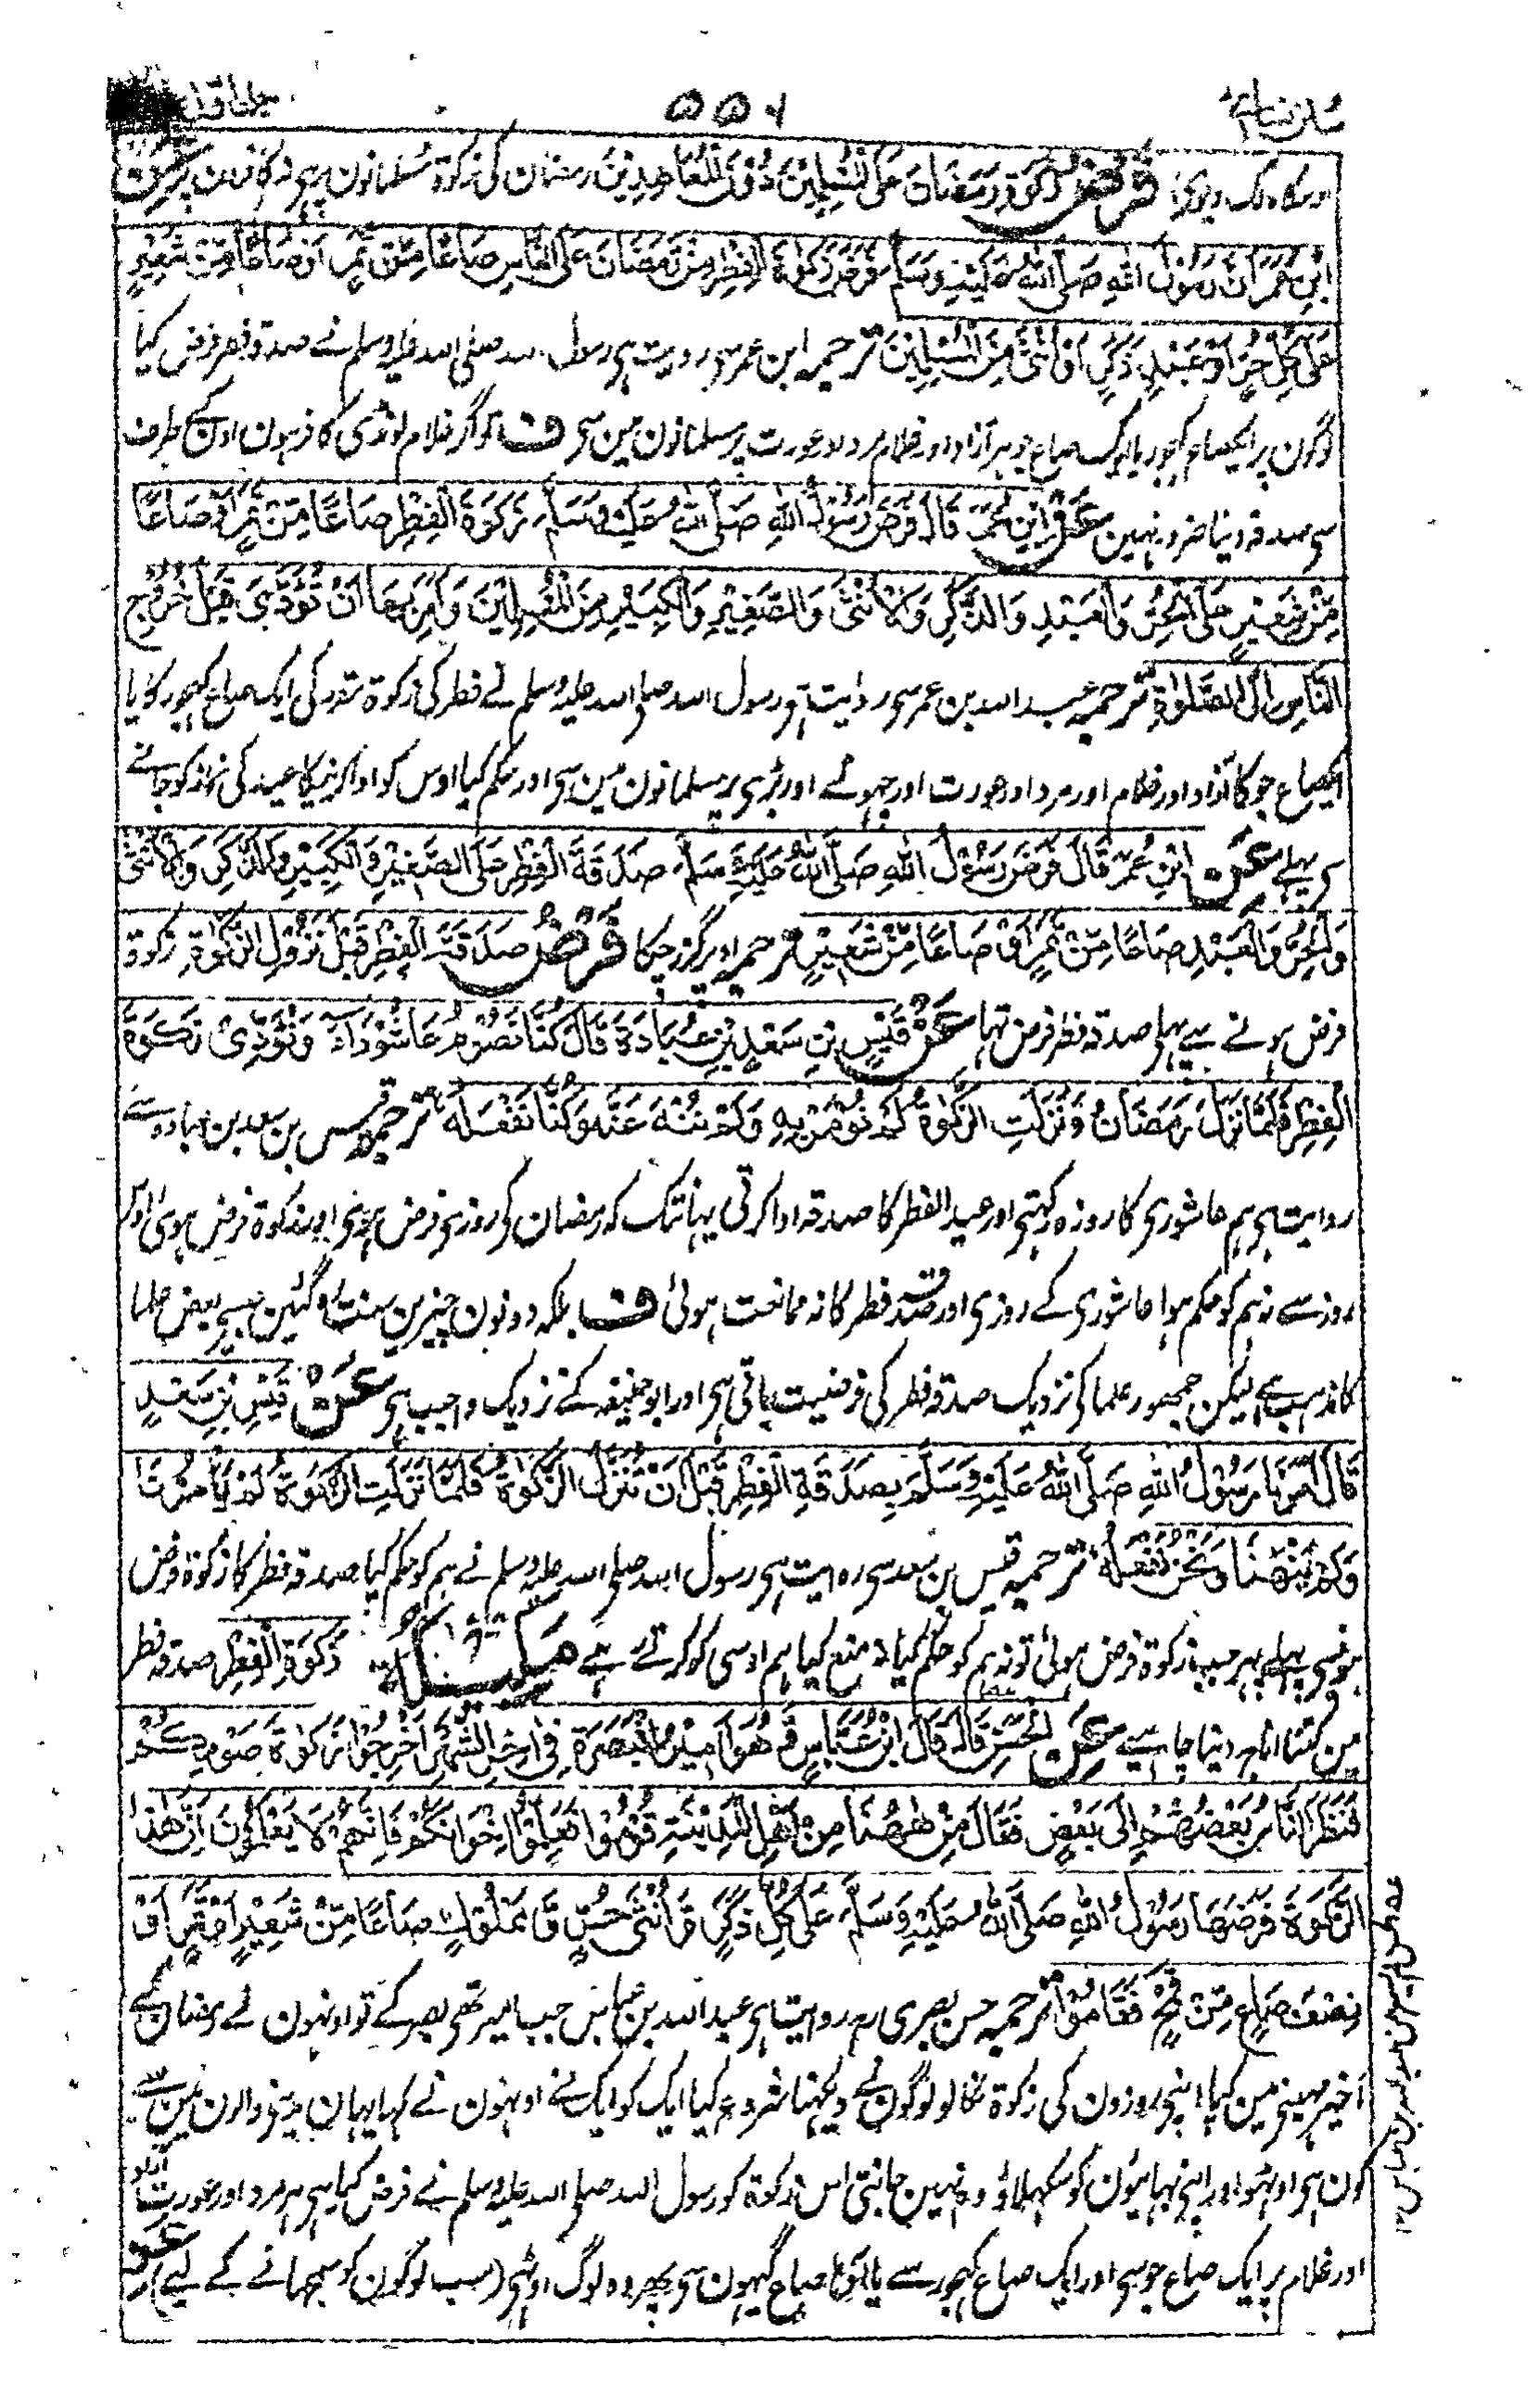 سنن نسائی ۵۵۶ جلد اول
اوسکا مالک دیوی فَرْضُ زَكٰوةِ رَمَضَانَ عَلَى الْمُسْلِمِيْنَ دُوْنَ الْمُعَاهِدِيْنَ رمضان کی زکوۃ مسلمانون پر ہی نہ کافرون پر عَنِ
ابْنِ عُمَرَ اَنَّ رَسُوْلَ اللهِ صَلَّى اللهُ عَلَيْهِ وَسَلَّمَ فَرَضَ زَكٰوةَ الْفِطْرِ مِنْ رَمَضَانَ عَلَى النَّاسِ صَاعًا مِّنْ تَمَرٍ اَوْ صَاعًا مِّنْ شَعِيْرٍ
عَلٰى كُلِّ حُرٍّ اَوْ عَبْدٍ ذَكَرٍ اَوْ اُنْثٰى مِنَ الْمُسْلِمِيْنَ ترجمہ ابن عمر سی روایت ہی رسول اللہ صلی اللہ علیہ وسلم نے صدقہ فطر فرض کیا
لوگون پر ایکصاع کھجور یا ایک صاع جو ہر آزاد اور غلام مرد اور عورت پر مسلمانون مین سی ف تو اگر غلام لونڈی کافر ہون اونکی طرف
سی صدقہ دینا ضرور نہین عَنِ ابْنِ عُمَرَ قَالَ فَرَضَ رَسُوْلُ اللهِ صَلَّى اللهُ عَلَيْهِ وَسَلَّمَ زَكٰوةَ الْفِطْرِ صَاعًا مِّنْ تَمَرٍ اَوْ صَاعًا
مِّنْ شَعِيْرٍ عَلَى الْحُرِّ وَالْعَبْدِ وَالذَّكَرِ وَالْاُنْثٰى وَالصَّغِيْرِ وَالْكَبِيْرِ مِنَ الْمُسْلِمِيْنَ وَاَمَرَ بِهَا اَنْ تُؤَدّٰى قَبْلَ خُرُوْجِ
النَّاسِ اِلَى الصَّلٰوةِ ترجمہ عبد اللہ بن عمر سی روایت ہی رسول اللہ صلی اللہ علیہ وسلم نے فطر کی زکوۃ مقرر کی ایک صاع کھجور کا یا
ایکصاع جو کا آزاد اور غلام اور مرد اور عورت اور چھوٹے اور بڑی پر مسلمانون مین سی اور حکم کیا اوس کو ادا کرنیکا عید کی نماز کو جانے
سی پہلے عَنِ ابْنِ عُمَرَ قَالَ فَرَضَ رَسُوْلُ اللهِ صَلَّى اللهُ عَلَيْهِ وَسَلَّمَ صَدَقَةَ الْفِطْرِ عَلَى الصَّغِيْرِ وَالْكَبِيْرِ وَالذَّكَرِ وَالْاُنْثٰى
وَالْحُرِّ وَالْعَبْدِ صَاعًا مِّنْ تَمَرٍ اَوْ صَاعًا مِّنْ شَعِيْرٍ ترجمہ اوپر گزر چکا فَرْضُ صَدَقَةِ الْفِطْرِ قَبْلَ نُزُوْلِ الزَّكٰوةِ زکوۃ
فرض ہونے سے پہلی صدقہ فطر فرض تہا عَنْ قَيْسِ بْنِ سَعْدِ بْنِ عُبَادَةَ قَالَ كُنَّا نَصُوْمُ عَاشُوْرَاءَ وَنُؤَدِّيْ زَكٰوةَ
الْفِطْرِ فَلَمَّا نَزَلَ رَمَضَانُ وَنَزَلَتِ الزَّكٰوةُ لَمْ نُؤْمَرْ بِهٖ وَلَمْ نُنْهَ عَنْهُ وَكُنَّا نَفْعَلُهٗ ترجمہ قیس بن سعد بن عبادہ سے
روایت ہی ہم عاشوری کا روزہ رکہتی اور عید الفطر کا صدقہ ادا کرتی یہانتک کہ رمضان کی روزی فرض ہوئی اور زکوۃ فرض ہوئی اوس
روز سے نہ ہم کو حکم ہوا عاشوری کے روزی اور صدقہ فطر کا نہ ممانعت ہوئی ف بلکہ دونون چیزین سنت ہو گئین جیسی بعض علما
کا مذہب ہے لیکن جمہور علما کی نزدیک صدقہ فطر کی فرضیت باقی ہی اور ابو حنیفہ کے نزدیک واجب ہی عَنْ قَيْسِ بْنِ سَعْدٍ
قَالَ اَمَرَنَا رَسُوْلُ اللهِ صَلَّى اللهُ عَلَيْهِ وَسَلَّمَ بِصَدَقَةِ الْفِطْرِ قَبْلَ اَنْ تُنْزَلَ الزَّكٰوةُ فَلَمَّا نَزَلَتِ الزَّكٰوةُ لَمْ يَأْمُرْنَا
وَلَمْ يَنْهَنَا وَنَحْنُ نَفْعَلُهٗ ترجمہ قیس بن سعد سی روایت ہی رسول اللہ صلی اللہ علیہ وسلم نے ہم کو حکم کیا صدقہ فطر کا زکوۃ فرض
ہونی سی پہلے پہر جب زکوۃ فرض ہوئی تو نہ ہم کو حکم کیا نہ منع کیا ہم اوسی کو کرتے رہے مَكِيْلَةُ زَكٰوةِ الْفِطْرِ صدقہ فطر
مین کتنا اناج دینا چاہیے عَنِ الْحَسَنِ قَالَ قَالَ ابْنُ عَبَّاسٍ وَّهُوَ اَمِيْرُ الْبَصْرَةِ فِيْ اٰخِرِ الشَّهْرِ اَخْرِجُوْا زَكٰوةَ صَوْمِكُمْ
فَنَظَرَ النَّاسُ بَعْضُهُمْ اِلٰى بَعْضٍ فَقَالَ مَنْ هٰهُنَا مِنْ اَهْلِ الْمَدِيْنَةِ قُوْمُوْا فَعَلِّمُوْا اِخْوَانَكُمْ فَاِنَّهُمْ لَا يَعْلَمُوْنَ اَنَّ هٰذِهِ
الزَّكٰوةَ فَرَضَهَا رَسُوْلُ اللهِ صَلَّى اللهُ عَلَيْهِ وَسَلَّمَ عَلٰى كُلِّ ذَكَرٍ وَّاُنْثٰى حُرٍّ وَّمَمْلُوْكٍ صَاعًا مِّنْ شَعِيْرٍ اَوْ تَمْرٍ اَوْ
نِصْفَ صَاعٍ مِّنْ قَمْحٍ فَقَامُوْا ترجمہ حسن بصری رح روایت ہی عبد اللہ بن عباس جب امیر تھی بصرہ کے تو اونہون نے رمضان کے
اخیر مہینے مین کہا اپنی روزون کی زکوۃ نکالو لوگون نے دیکہنا شروع کیا ایک کو ایک نے اونہون نے کہا یہان مدینہ والون مین سے
کون ہی اوٹہو اور اپنی بہائیون کو سکہلاؤ وہ نہین جانتی اس زکوۃ کو رسول اللہ صلی اللہ علیہ وسلم نے فرض کیا ہی ہر مرد اور عورت آزاد
اور غلام پر ایک صاع جو سی اور ایک صاع کھجور سے یا آدھا صاع گیہون سی پھر وہ لوگ اوٹھی (سب لوگون کو سمجھانے کے لیے) عَنِ